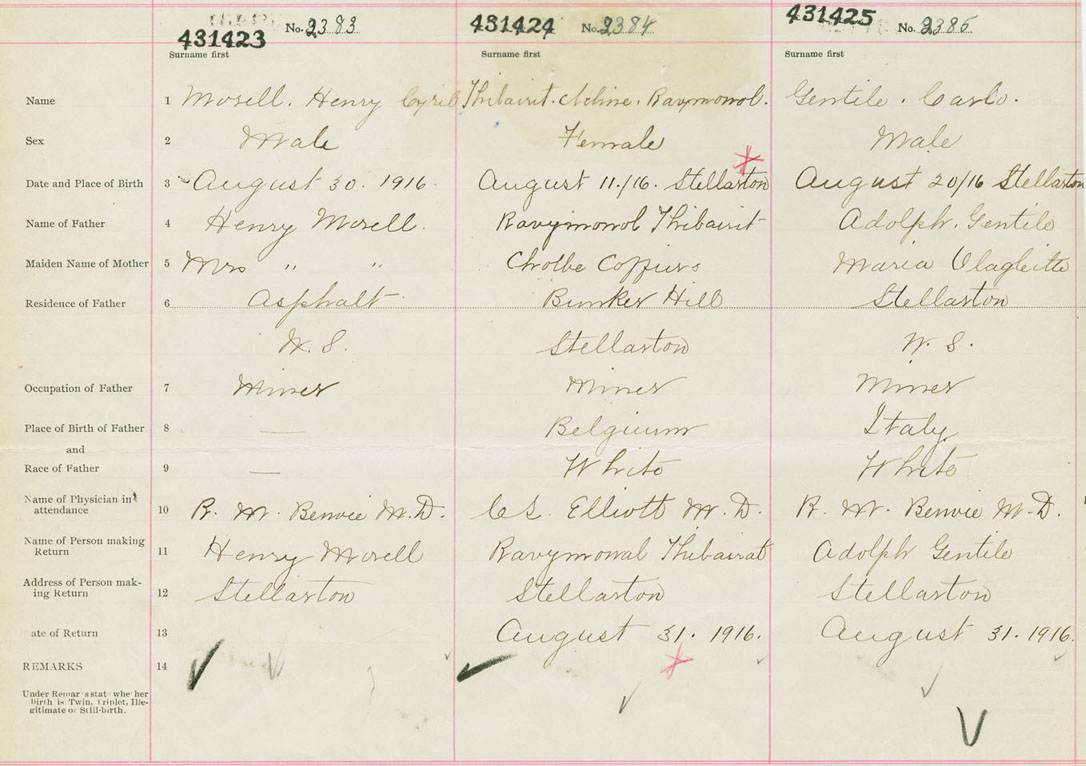 431423 No. 2383 431424 No. 2384 431425 No. 2385
Surname first Surname first Surname first
Name 1 Morell. Henry Cyril Thibairit. Raymond. Gentile. Carlo.
Sex 2 Male Female Male
Date and Place of Birth 3 August 30. 1916. August 11./16. Stellarton August 20/16 Stellarton
Name of Father 4 Henry Morell. Raymond Thibairit Adolph. Gentile
Maiden Name of Mother 5 Mrs " " Maria
Residence of Father 6 Asphalt Bunker Hill Stellarton
N. S. Stellarton N. S.
Occupation of Father 7 Miner Miner Miner
Place of Birth of Father 8 — Belgium Italy
and
Race of Father 9 — White White
Name of Physician in
attendance 10 R. M. Benvie M.D. C S. Elliott M. D. R. M. Benvie M. D.
Name of Person making
Return 11 Henry Morell Raymond Adolph Gentile
Address of Person mak-
ing Return 12 Stellarton Stellarton Stellarton
ate of Return 13 August 31. 1916. August 31. 1916.
REMARKS 14
Under Remar s stat whe her
Birth is Twin, Triplet, Ille-
gitimate or Still-birth.